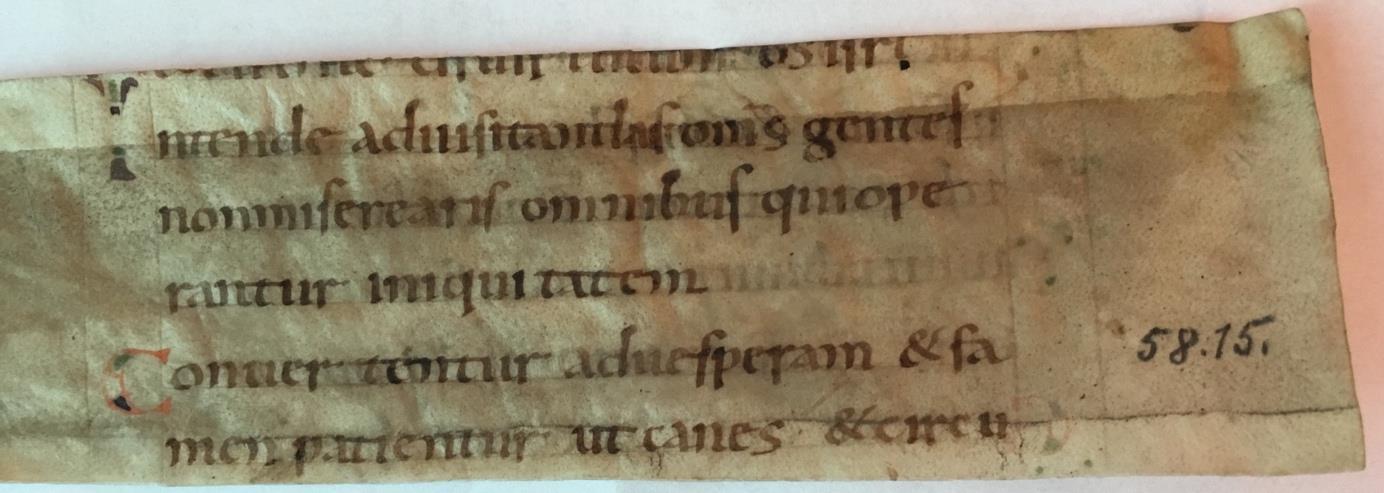 uirtutum ds isrl.
Intende aduisitandas oms gentes
nonmiserearis omnibus quiope
rantur iniquitatem
Conuertentur aduesperam & fa 58.15.
men patientur ut canes & circu